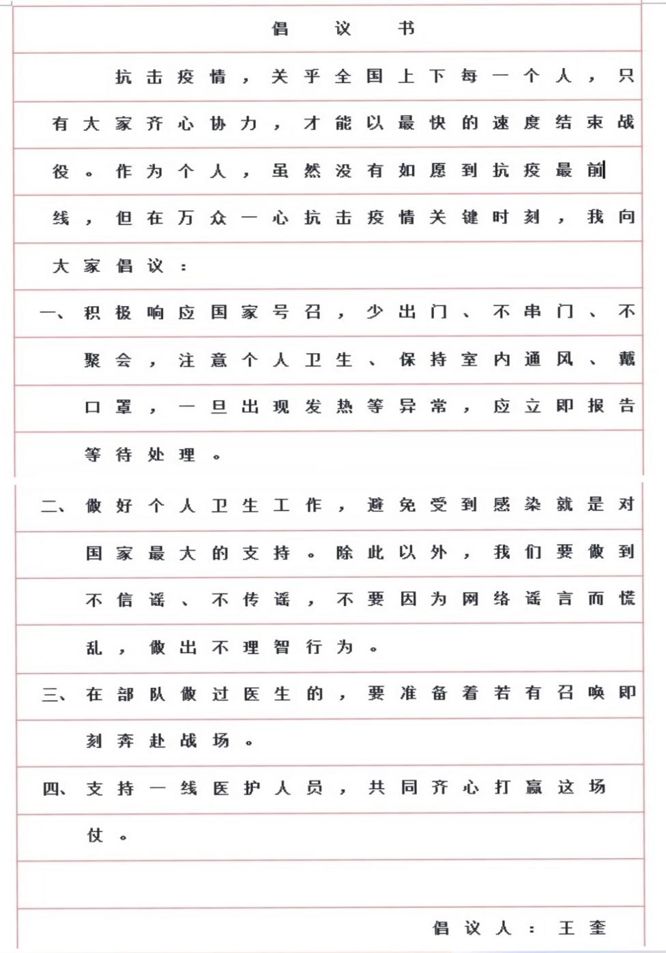 倡议书
抗击疫情，关乎全国上下每一个人，只
有大家齐心协力，才能以最快的速度结束战
役。作为个人，虽然没有如愿到抗疫最前
线，但在万众一心抗击疫情关键时刻，我向
大家倡议：
一、积极响应国家号召，少出门、不串门、不
聚会，注意个人卫生、保持室内通风、戴
口罩，一旦出现发热等异常，应立即报告
等待处理。
二、做好个人卫生工作，避免受到感染就是对
国家最大的支持。除此以外，我们要做到
不信谣、不传谣，不要因为网络谣言而慌
乱，做出不理智行为。
三、在部队做过医生的，要准备着若有召唤即
刻奔赴战场。
四、支持一线医护人员，共同齐心打赢这场
仗。
倡议人：王奎